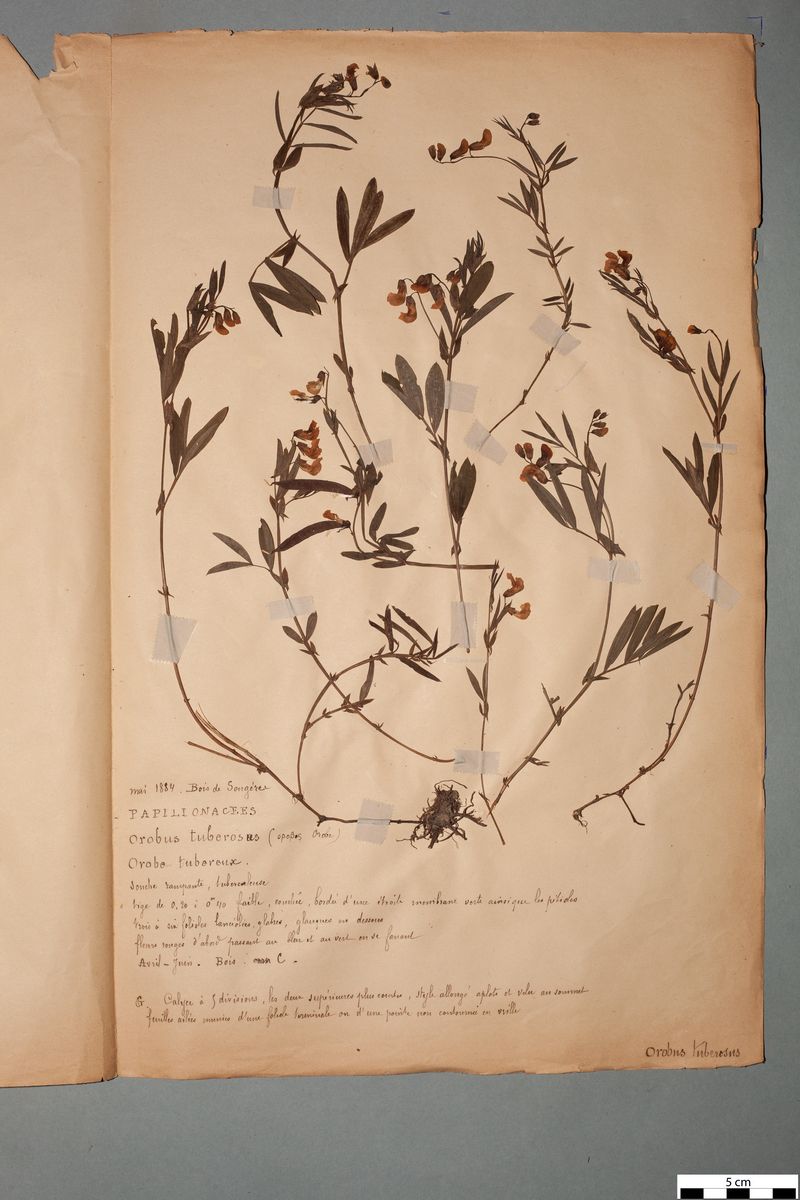 mai 1884. Bois de Songère
PAPILIONACEES
Orobus tuberosus (οροβος Orobe)
Orobe tubereux.
Souche rampante, tuberculeuse
tige de 0,20 à 0m40 faible, couchée, bordée d'une étroite membrane verte ainsi que les pétioles
trois à six folioles lancéolées, glabres, glauques en dessous
fleurs rouges d'abord passant au bleu et au vert en se fanant
Avril-Juin. Bois. C.
G Calyce à 5 divisions, les deux supérieures plus courtes, style allongé aplati et velu au sommet
feuilles ailées munies d'une foliole terminale ou d'une pointe non contournée en vrille
Orobus tuberosus
5 cm